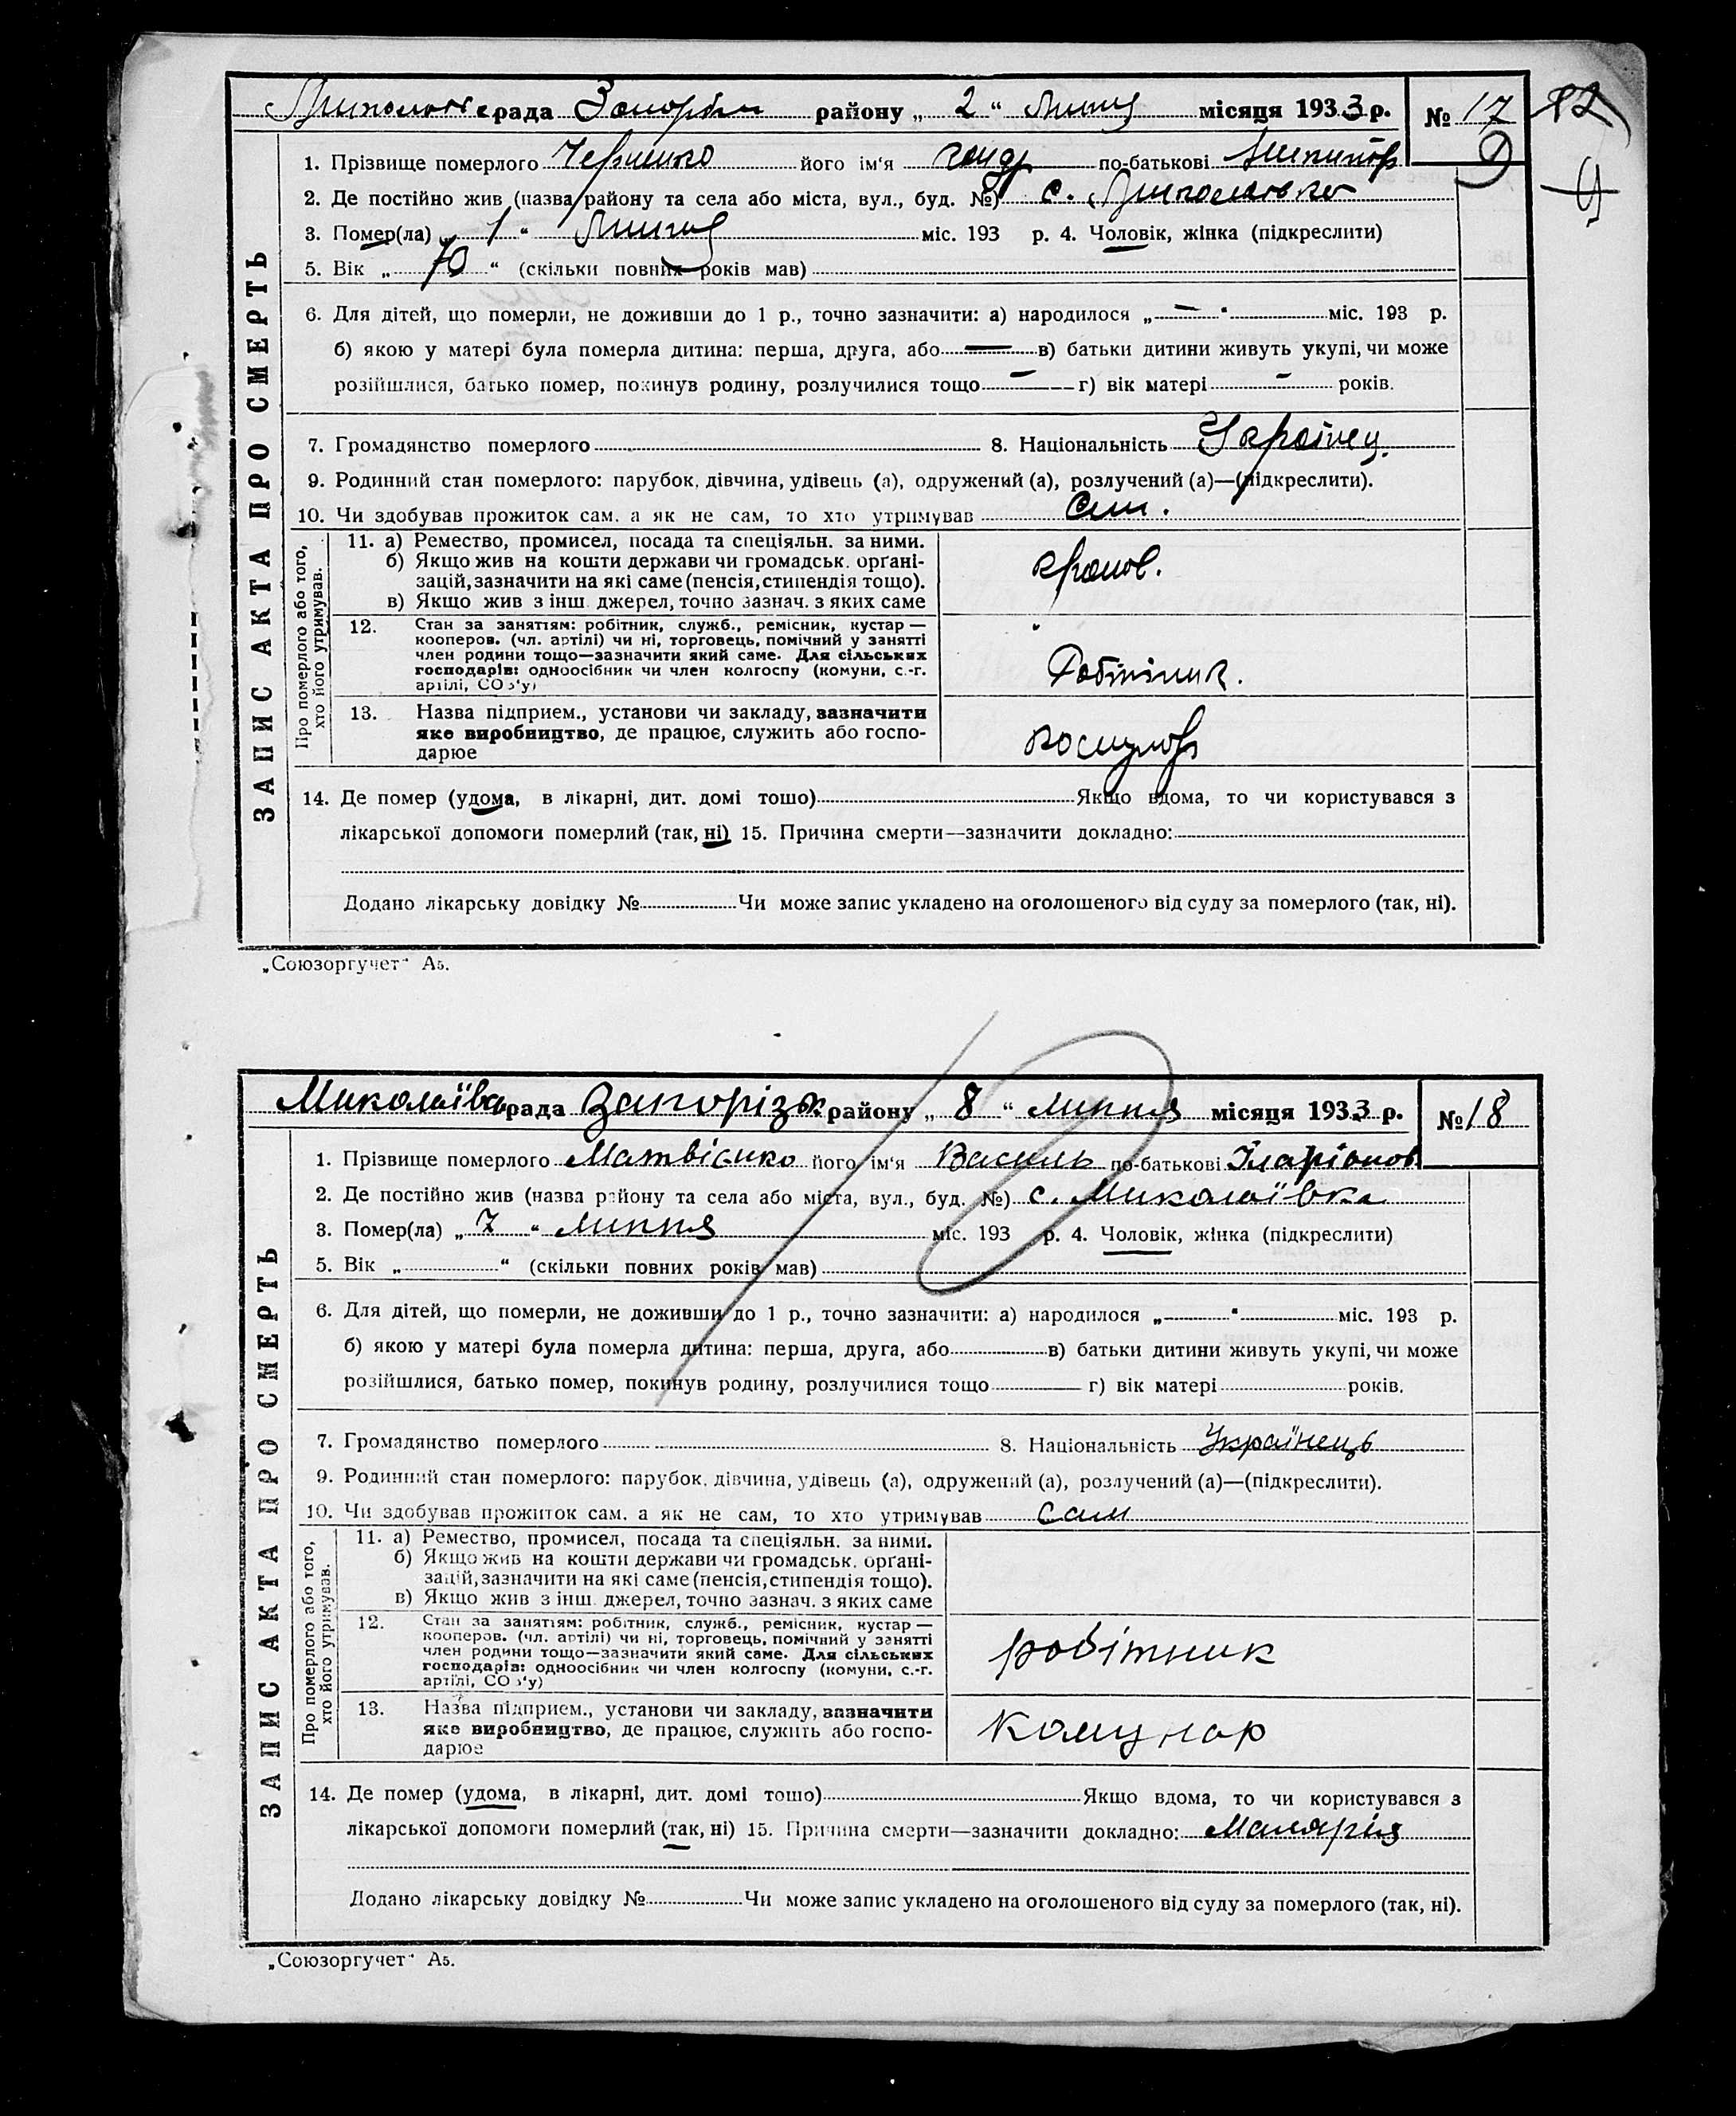 рада Запорізьк району „ 2 “ Липця місяця 1933 р. № 17
1. Прізвище померлого його ім‘я по-батькові
2. Де постійно жив (назва району та села або міста, вул., буд. №) с. Миколаївка
3. Помер(ла) „ 1 “ Липця міс. 193 р. 4. Чоловік, жінка (підкреслити)
5. Вік „ 70 “ (скільки повних років мав)
6. Для дітей, що померли, не доживши до 1 р., точно зазначити: а) народилося „ — “ міс. 193 р.
б) якою у матері була померла дитина: перша, друга, або — в) батьки дитини живуть укупі, чи може
розійшлися, батько помер, покинув родину, розлучилися тощо — г) вік матері — років.
7. Громадянство померлого 8. Національність Українец.
9. Родинний стан померлого: парубок, дівчина, удівець (а), одружений (а), розлучений (а)—(підкреслити).
10. Чи здобував прожиток сам, а як не сам, то хто утримував Сам.
ЗАПИС АКТА ПРО СМЕРТЬ
Про померлого або того, хто його утримував.
11. а) Ремество, промисел, посада та спеціяльн. за ними.
б) Якщо жив на кошти держави чи громадськ. орґані-
зацій, зазначити на які саме (пенсія, стипендія тощо).
в) Якщо жив з інш. джерел, точно зазнач. з яких саме
12. Стан за заняттям: робітник, служб., ремісник, кустар —
кооперов. (чл. артілі) чи ні, торговець, помічний у занятті
член родини тощо—зазначити який саме. Для сільських
господарів: одноосібник чи член колгоспу (комуни, с.-г.
артілі, СОЗ‘у)
Робітник.
13. Назва підприєм., установи чи закладу, зазначити
яке виробництво, де працює, служить або госпо-
дарює
Комунар
14. Де помер (удома, в лікарні, дит. домі тощо) Якщо вдома, то чи користувався з
лікарської допомоги померлий (так, ні) 15. Причина смерти—зазначити докладно:
Додано лікарську довідку № Чи може запис укладено на оголошеного від суду за померлого (так, ні).
„Союзоргучет“ А5.
Миколаївсь рада Запорізьк району „ 8 “ липня місяця 1933 р. № 18
1. Прізвище померлого Матвієнко його ім‘я Василь по-батькові Іларіонов
2. Де постійно жив (назва району та села або міста, вул., буд. №) с. Миколаївка
3. Помер(ла) „ 7 “ липня міс. 193 р. 4. Чоловік, жінка (підкреслити)
5. Вік „ “ (скільки повних років мав)
6. Для дітей, що померли, не доживши до 1 р., точно зазначити: а) народилося „ “ міс. 193 р.
б) якою у матері була померла дитина: перша, друга, або в) батьки дитини живуть укупі, чи може
розійшлися, батько помер, покинув родину, розлучилися тощо г) вік матері років.
7. Громадянство померлого 8. Національність Українець
9. Родинний стан померлого: парубок, дівчина, удівець (а), одружений (а), розлучений (а)—(підкреслити).
10. Чи здобував прожиток сам, а як не сам, то хто утримував сам
ЗАПИС АКТА ПРО СМЕРТЬ
Про померлого або того, хто його утримував.
11. а) Ремество, промисел, посада та спеціяльн. за ними.
б) Якщо жив на кошти держави чи громадськ. орґані-
зацій, зазначити на які саме (пенсія, стипендія тощо).
в) Якщо жив з інш. джерел, точно зазнач. з яких саме
12. Стан за заняттям: робітник, служб., ремісник, кустар —
кооперов. (чл. артілі) чи ні, торговець, помічний у занятті
член родини тощо—зазначити який саме. Для сільських
господарів: одноосібник чи член колгоспу (комуни, с.-г.
артілі, СОЗ‘у)
робітник
13. Назва підприєм., установи чи закладу, зазначити
яке виробництво, де працює, служить або госпо-
дарює
Комунар
14. Де помер (удома, в лікарні, дит. домі тощо) Якщо вдома, то чи користувався з
лікарської допомоги померлий (так, ні) 15. Причина смерти—зазначити докладно: Малярія
Додано лікарську довідку № Чи може запис укладено на оголошеного від суду за померлого (так, ні).
„Союзоргучет“ А5.